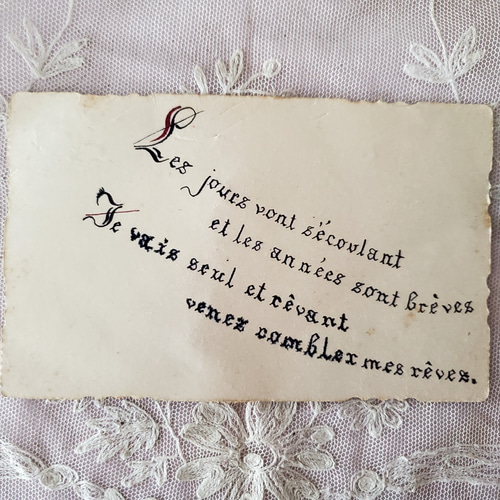 Les jours vont s'écoulant
et les années sont brèves
Je vais seul et rêvant
venez combler mes rêves.